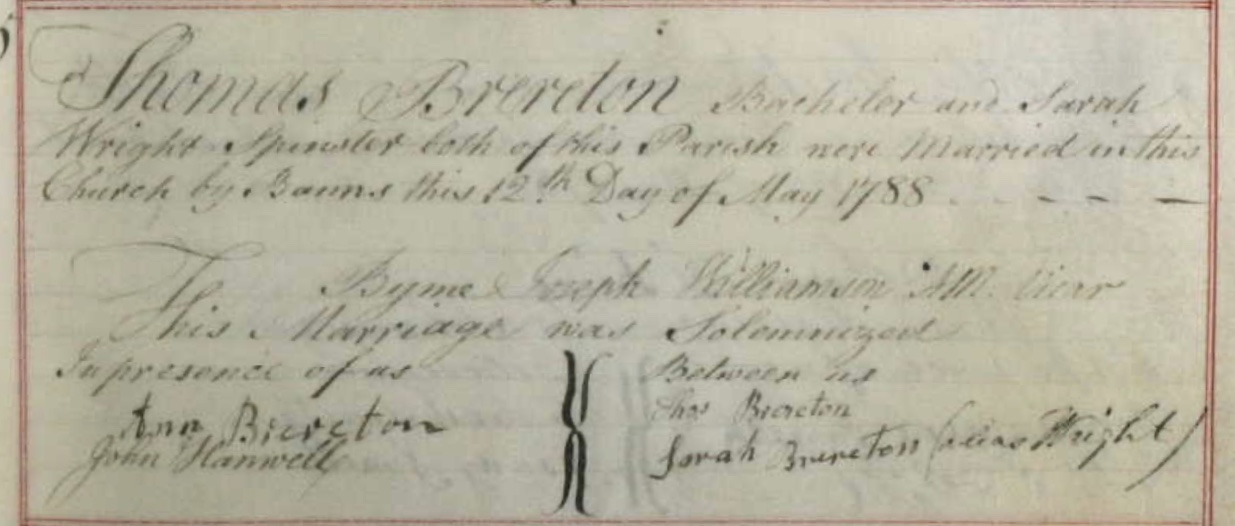 Thomas Brereton Bachelor and Sarah
Wright Spinster both of this Parish were Married in this
Church by Banns this 12th Day of May 1788
By me Joseph Williamson AM. Vicar
This Marriage was Solemnized
In presence of us
Ann Brereton
John Hanwell
Between us
Thos Brereton
Sarah Brereton (alias Wright)